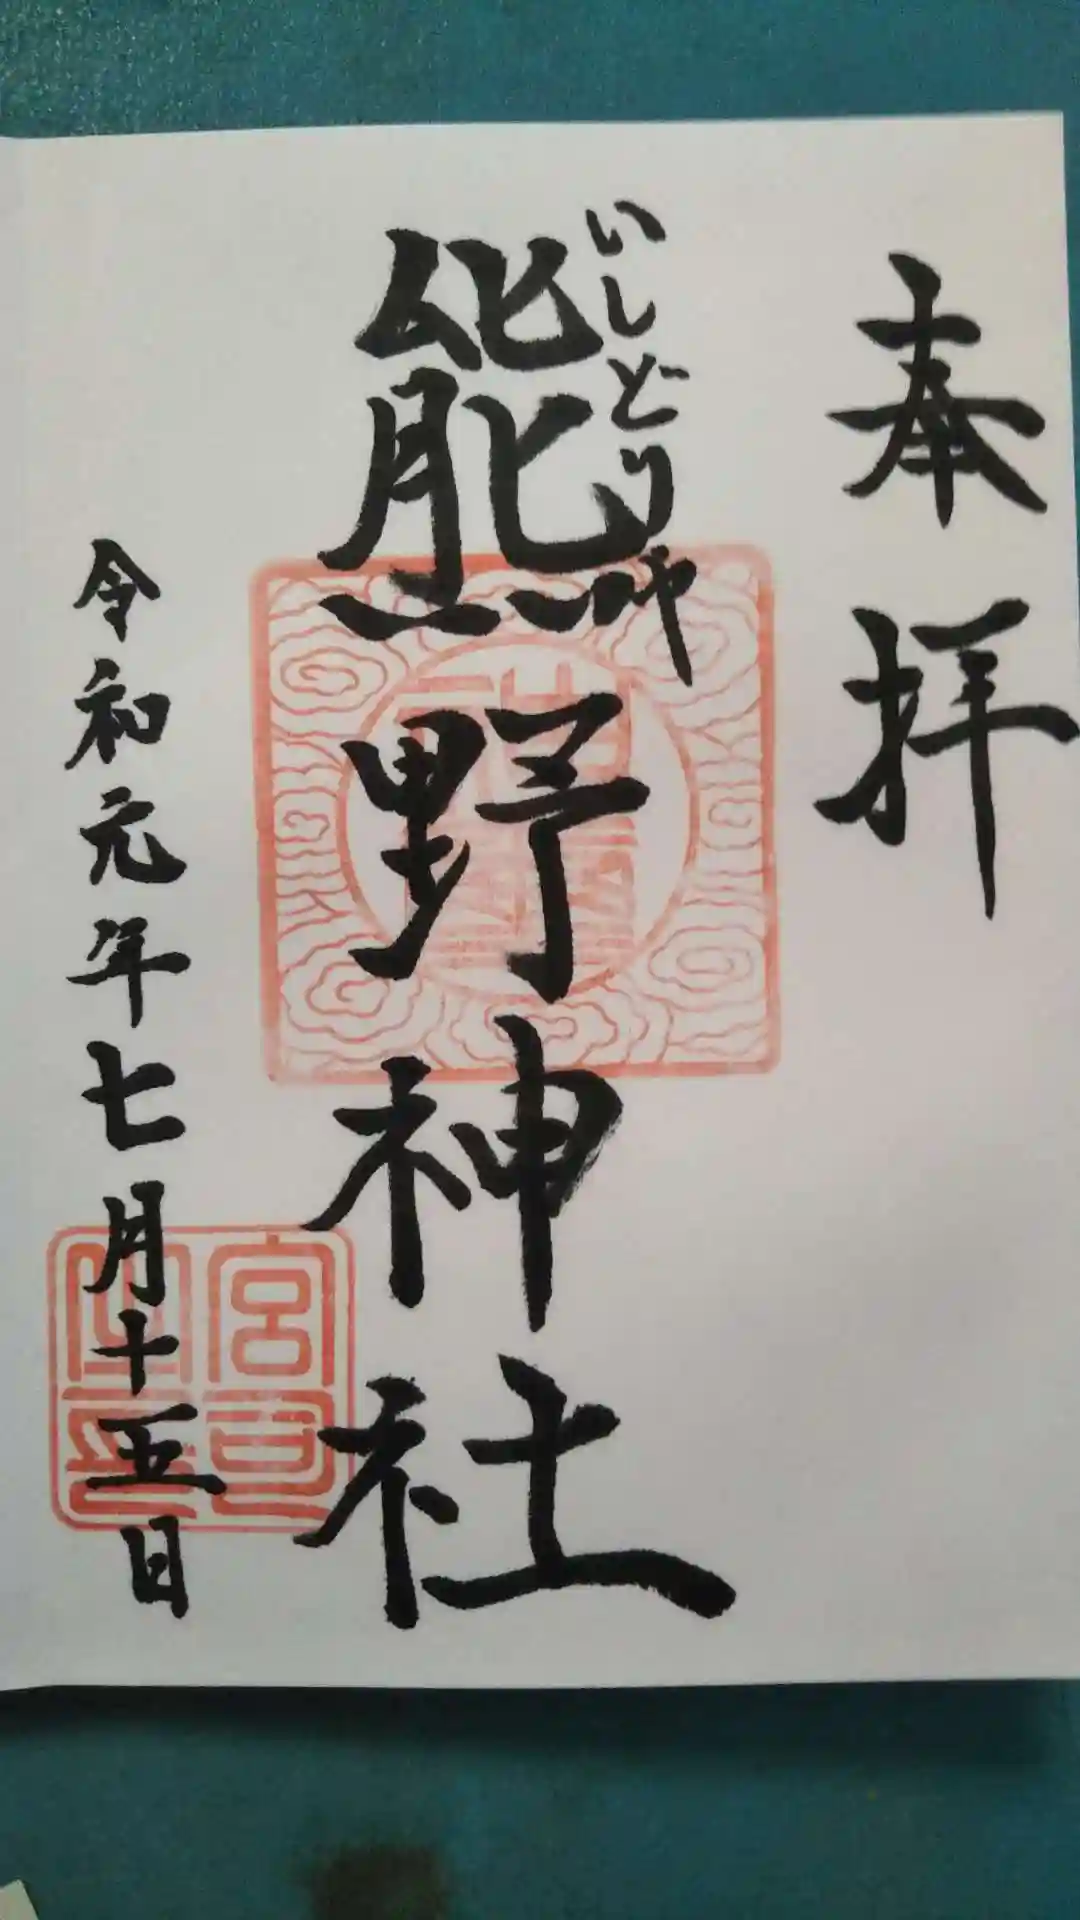 奉拝
いしどりや
熊野神社
令和元年七月十五日